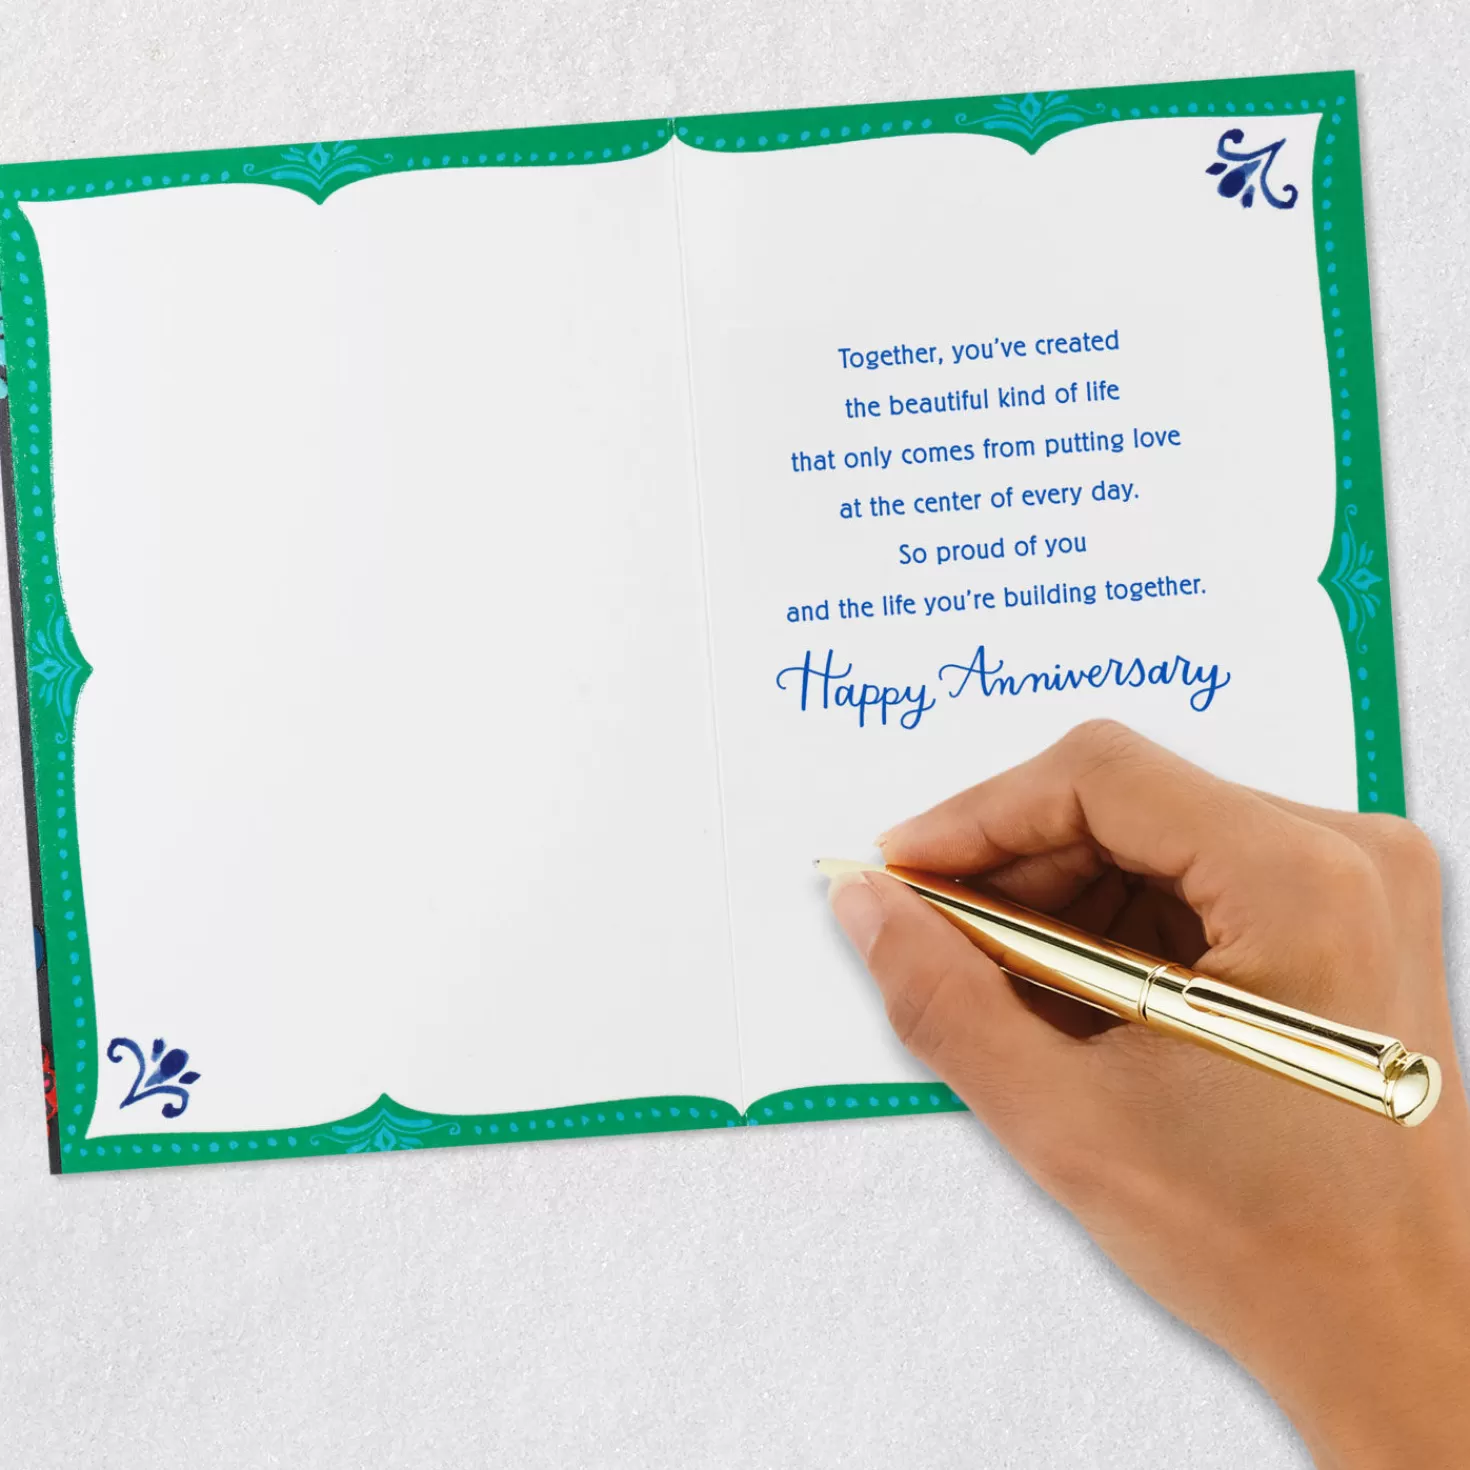 Together, you've created
the beautiful kind of life
that only comes from putting love
at the center of every day.
So proud of you
and the life you're building together.
Happy Anniversary